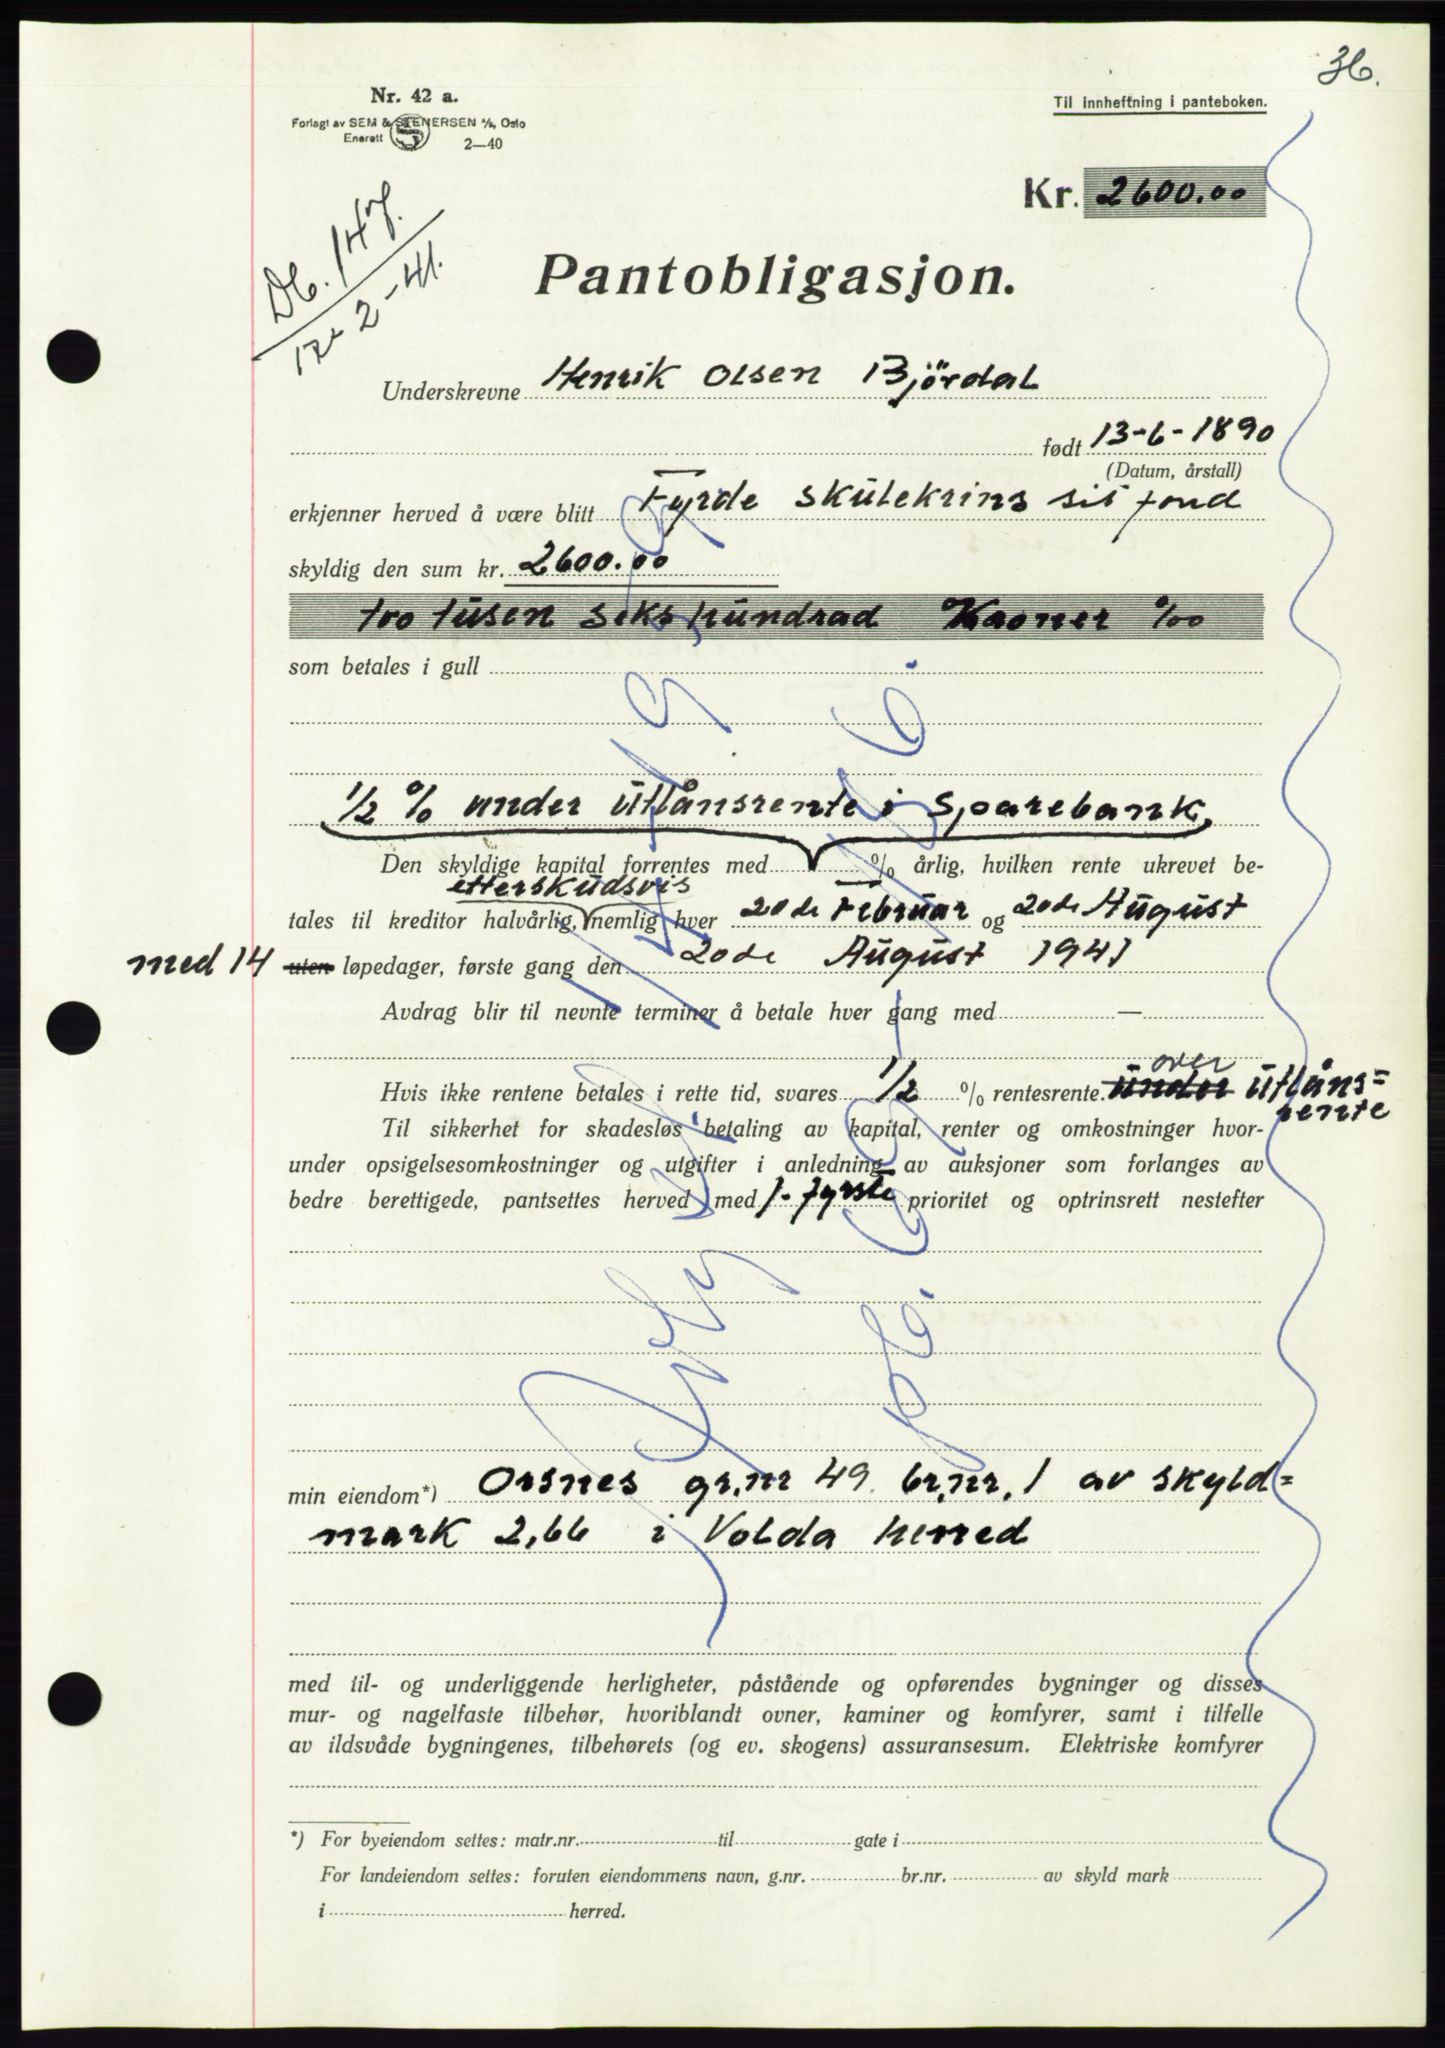 36.
Nr. 42 a.
Forlagt av SEM & STENERSEN A/S, Oslo
Enerett
2—40
Til innheftning i panteboken.
Kr. 2600.00
Db. 147.
12/2-41.
Pantobligasjon.
Underskrevne Henrik Olsen Björdal
født 13-6-1890
(Datum, årstall)
erkjenner herved å være blitt Fyrde skulekrins sit fond
skyldig den sum kr. 2600.00
tvo tusen seks hundrad Kroner %oo
som betales i gull
1/2 % under utlånsrente i Sparebank,
Den skyldige kapital forrentes med % årlig, hvilken rente ukrevet be-
etterskudsvis
tales til kreditor halvårlig, nemlig hver 20de Februar og 20de August
med 14 uten løpedager, første gang den 20de August 1941
Avdrag blir til nevnte terminer å betale hver gang med —
over
Hvis ikke rentene betales i rette tid, svares 1/2 % rentesrente. under utlåns=
rente
Til sikkerhet for skadesløs betaling av kapital, renter og omkostninger hvor-
under opsigelsesomkostninger og utgifter i anledning av auksjoner som forlanges av
bedre berettigede, pantsettes herved med 1. fyrste prioritet og optrinsrett nestefter
min eiendom*) Orsnes gr.nr 49. br.nr. 1 av skyld=
mark 2,66 i Volda herred
med til- og underliggende herligheter, påstående og opførendes bygninger og disses
mur- og nagelfaste tilbehør, hvoriblandt ovner, kaminer og komfyrer, samt i tilfelle
av ildsvåde bygningenes, tilbehørets (og ev. skogens) assuransesum. Elektriske komfyrer
*) For byeiendom settes: matr.nr. til gate i
For landeiendom settes: foruten eiendommens navn, g.nr. br.nr. av skyld mark
i herred.